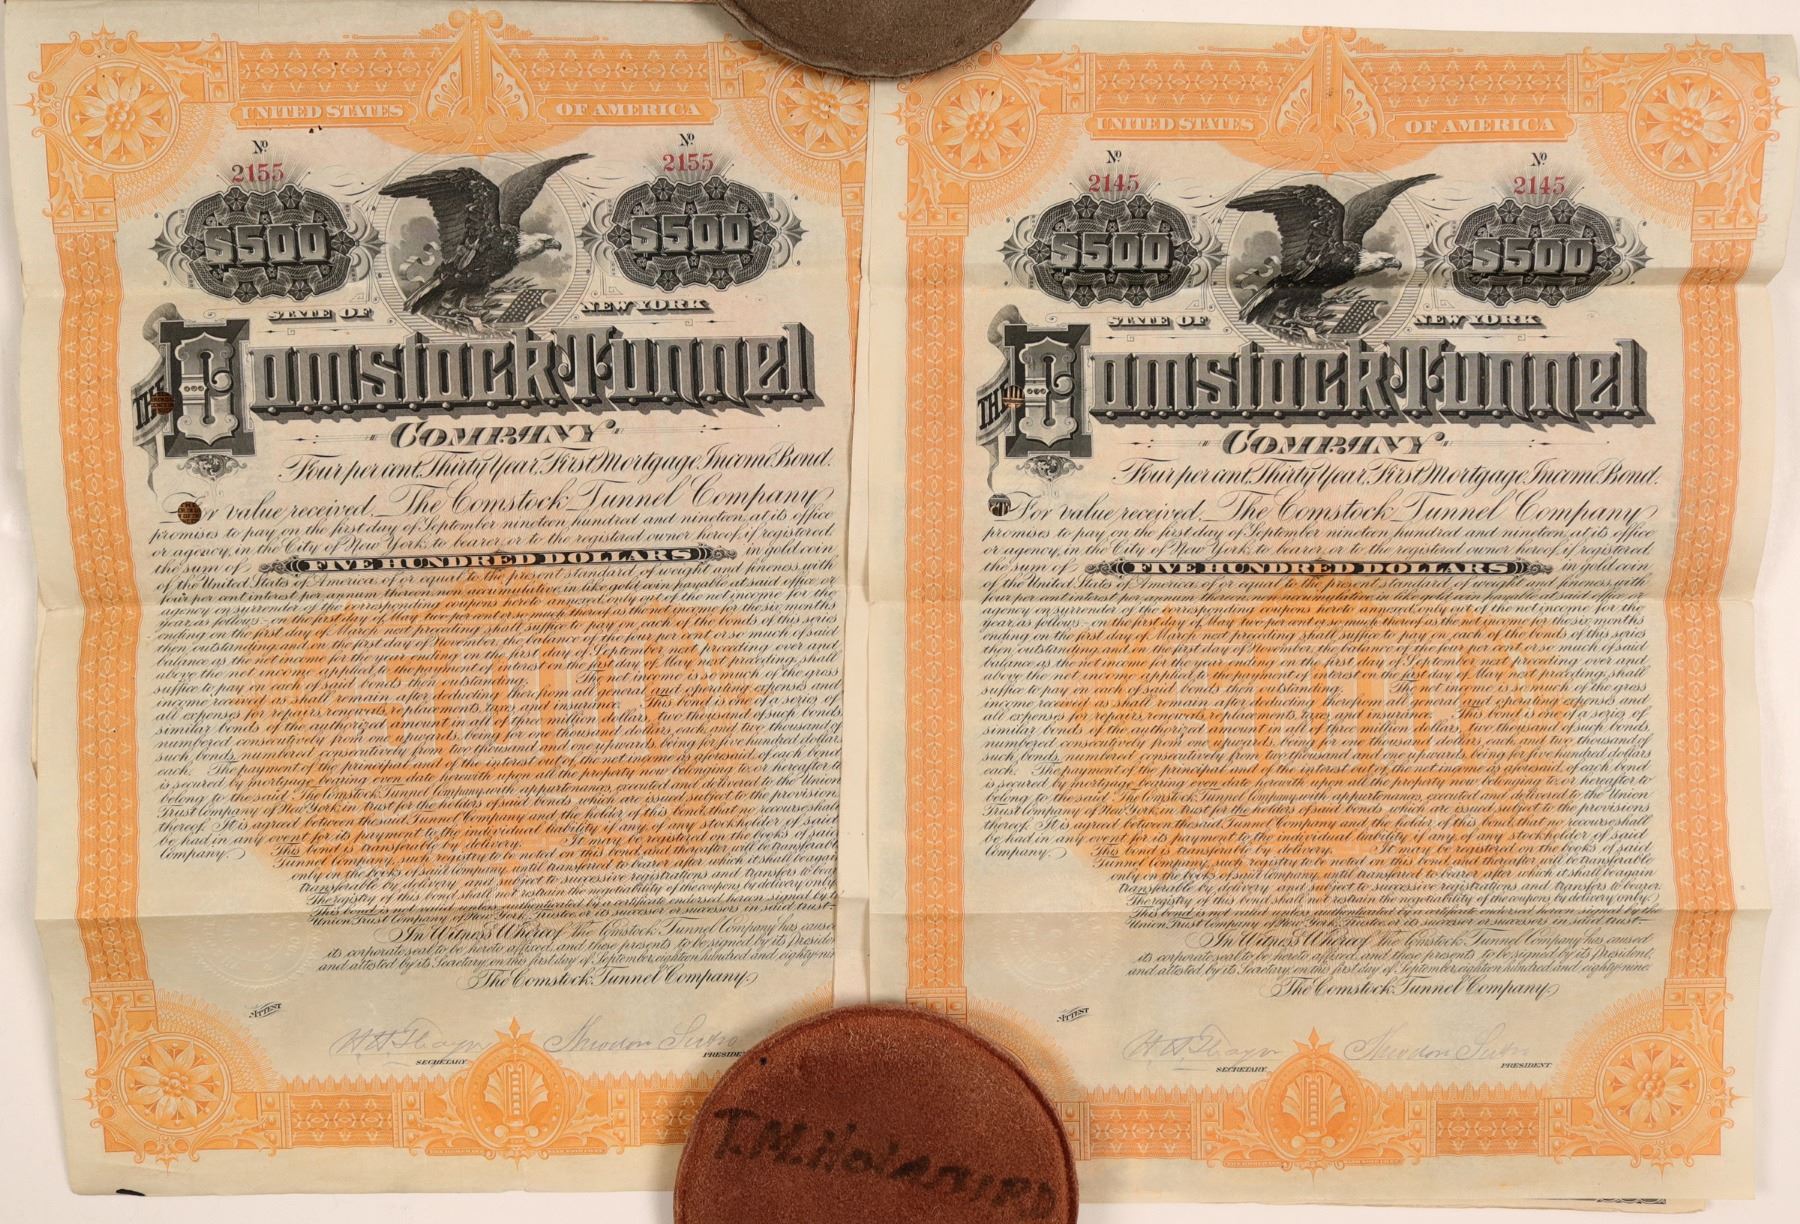 UNITED STATES OF AMERICA
Nº 2155
Nº 2155
$500
$500
STATE OF NEW YORK
THE Comstock Tunnel
COMPANY
Four per cent, Thirty Year, First Mortgage Income Bond.
For value received, The Comstock Tunnel Company
promises to pay, on the first day of September nineteen hundred and nineteen, at its office
or agency, in the City of New York, to bearer, or to the registered owner hereof, if registered,
the sum of FIVE HUNDRED DOLLARS in gold coin
of the United States of America, of or equal to the present standard of weight and fineness, with
four per cent interest per annum thereon, non accumulative, in like gold coin payable at said office or
agency on surrender of the corresponding coupons hereto annexed, only out of the net income for the
year, as follows:- on the first day of May two per cent or so much thereof as the net income for the six months
ending on the first day of March next preceding shall suffice to pay on each of the bonds of this series
then outstanding, and on the first day of November, the balance of the four per cent or so much of said
balance as the net income for the year ending on the first day of September next preceding over and
above the net income applied to the payment of interest on the first day of May next preceding, shall
suffice to pay on each of said bonds then outstanding. The net income is so much of the gross
income received as shall remain after deducting therefrom all general and operating expenses and
all expenses for repairs, renewals, replacements, taxes and insurance. This bond is one of a series of
similar bonds of the authorized amount in all of three million dollars, two thousand of such bonds,
numbered consecutively from one upwards, being for one thousand dollars each, and two thousand of
such bonds, numbered consecutively from two thousand and one upwards, being for five hundred dollars
each. The payment of the principal and of the interest out of the net income as aforesaid, of each bond
is secured by mortgage bearing even date herewith upon all the property now belonging to, or hereafter to
belong to the said The Comstock Tunnel Company, with appurtenances, executed and delivered to the Union
Trust Company of New York, in trust for the holders of said bonds which are issued subject to the provision
thereof. It is agreed between the said Tunnel Company and the holder of this bond, that no recourse shall
be had in any event for its payment to the individual liability of any, of any stockholder of said
Company. This bond is transferable by delivery. It may be registered on the books of said
Tunnel Company, such registry to be noted on this bond, and thereafter will be transferabl
only on the books of said Company, until transferred to bearer after which it shall be again
transferable by delivery and subject to successive registrations and transfers to bear
The registry of this bond shall not restrain the negotiability of the coupons by delivery only
This bond is not valid unless authenticated by a certificate endorsed hereon signed by t
Union Trust Company of New York, Trustee, or its successor or successors in said trust.
In Witness Whereof The Comstock Tunnel Company has cause
its corporate seal to be hereto affixed, and these presents to be signed by its Presiden
and attested by its Secretary, on this first day of September, eighteen hundred and eighty-nin
The Comstock Tunnel Company,
ATTEST
H H Thayer
SECRETARY
Theodore Sutro
PRESIDE
UNITED STATES OF AMERICA
Nº 2145
Nº 2145
$500
$500
STATE OF NEW YORK
THE Comstock Tunnel
COMPANY
Four per cent, Thirty Year, First Mortgage Income Bond.
For value received, The Comstock Tunnel Company
promises to pay, on the first day of September nineteen hundred and nineteen, at its office
or agency, in the City of New York, to bearer, or to the registered owner hereof, if registered,
the sum of FIVE HUNDRED DOLLARS in gold coin
of the United States of America, of or equal to the present standard of weight and fineness, with
four per cent interest per annum thereon, non accumulative, in like gold coin payable at said office or
agency on surrender of the corresponding coupons hereto annexed, only out of the net income for the
year, as follows:- on the first day of May two per cent or so much thereof as the net income for the six months
ending on the first day of March next preceding shall suffice to pay on each of the bonds of this series
then outstanding, and on the first day of November, the balance of the four per cent or so much of said
balance as the net income for the year ending on the first day of September next preceding over and
above the net income applied to the payment of interest on the first day of May next preceding, shall
suffice to pay on each of said bonds then outstanding. The net income is so much of the gross
income received as shall remain after deducting therefrom all general and operating expenses and
all expenses for repairs, renewals, replacements, taxes and insurance. This bond is one of a series of
similar bonds of the authorized amount in all of three million dollars, two thousand of such bonds,
numbered consecutively from one upwards, being for one thousand dollars each, and two thousand of
such bonds, numbered consecutively from two thousand and one upwards, being for five hundred dollars
each. The payment of the principal and of the interest out of the net income as aforesaid, of each bond
is secured by mortgage bearing even date herewith upon all the property now belonging to, or hereafter to
belong to the said The Comstock Tunnel Company, with appurtenances, executed and delivered to the Union
Trust Company of New York, in trust for the holders of said bonds which are issued subject to the provisions
thereof. It is agreed between the said Tunnel Company and the holder of this bond, that no recourse shall
be had in any event for its payment to the individual liability of any, of any stockholder of said
Company. This bond is transferable by delivery. It may be registered on the books of said
Tunnel Company, such registry to be noted on this bond, and thereafter will be transferable
only on the books of said Company, until transferred to bearer after which it shall be again
transferable by delivery and subject to successive registrations and transfers to bearer.
The registry of this bond shall not restrain the negotiability of the coupons by delivery only.
This bond is not valid unless authenticated by a certificate endorsed hereon signed by the
Union Trust Company of New York, Trustee, or its successor or successors in said trust.
In Witness Whereof The Comstock Tunnel Company has caused
its corporate seal to be hereto affixed, and these presents to be signed by its President,
and attested by its Secretary, on this first day of September, eighteen hundred and eighty-nine.
The Comstock Tunnel Company,
ATTEST
H H Thayer
SECRETARY
Theodore Sutro
PRESIDENT